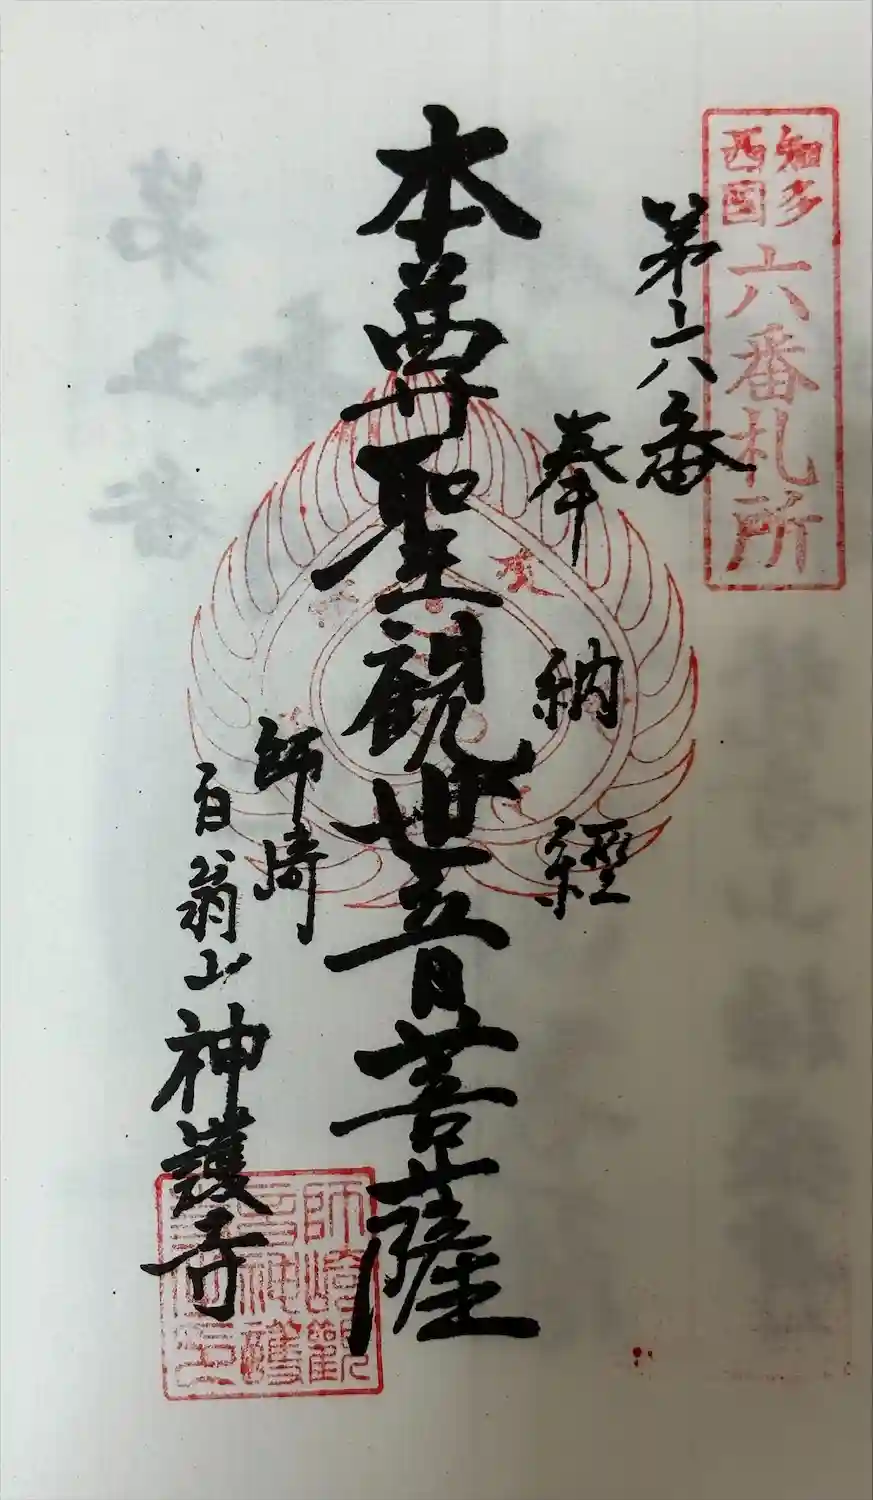 知多
西国
六番札所
第六番
奉納経
本尊聖観世音菩薩
師崎
百翁山神護寺
師崎観
音神護